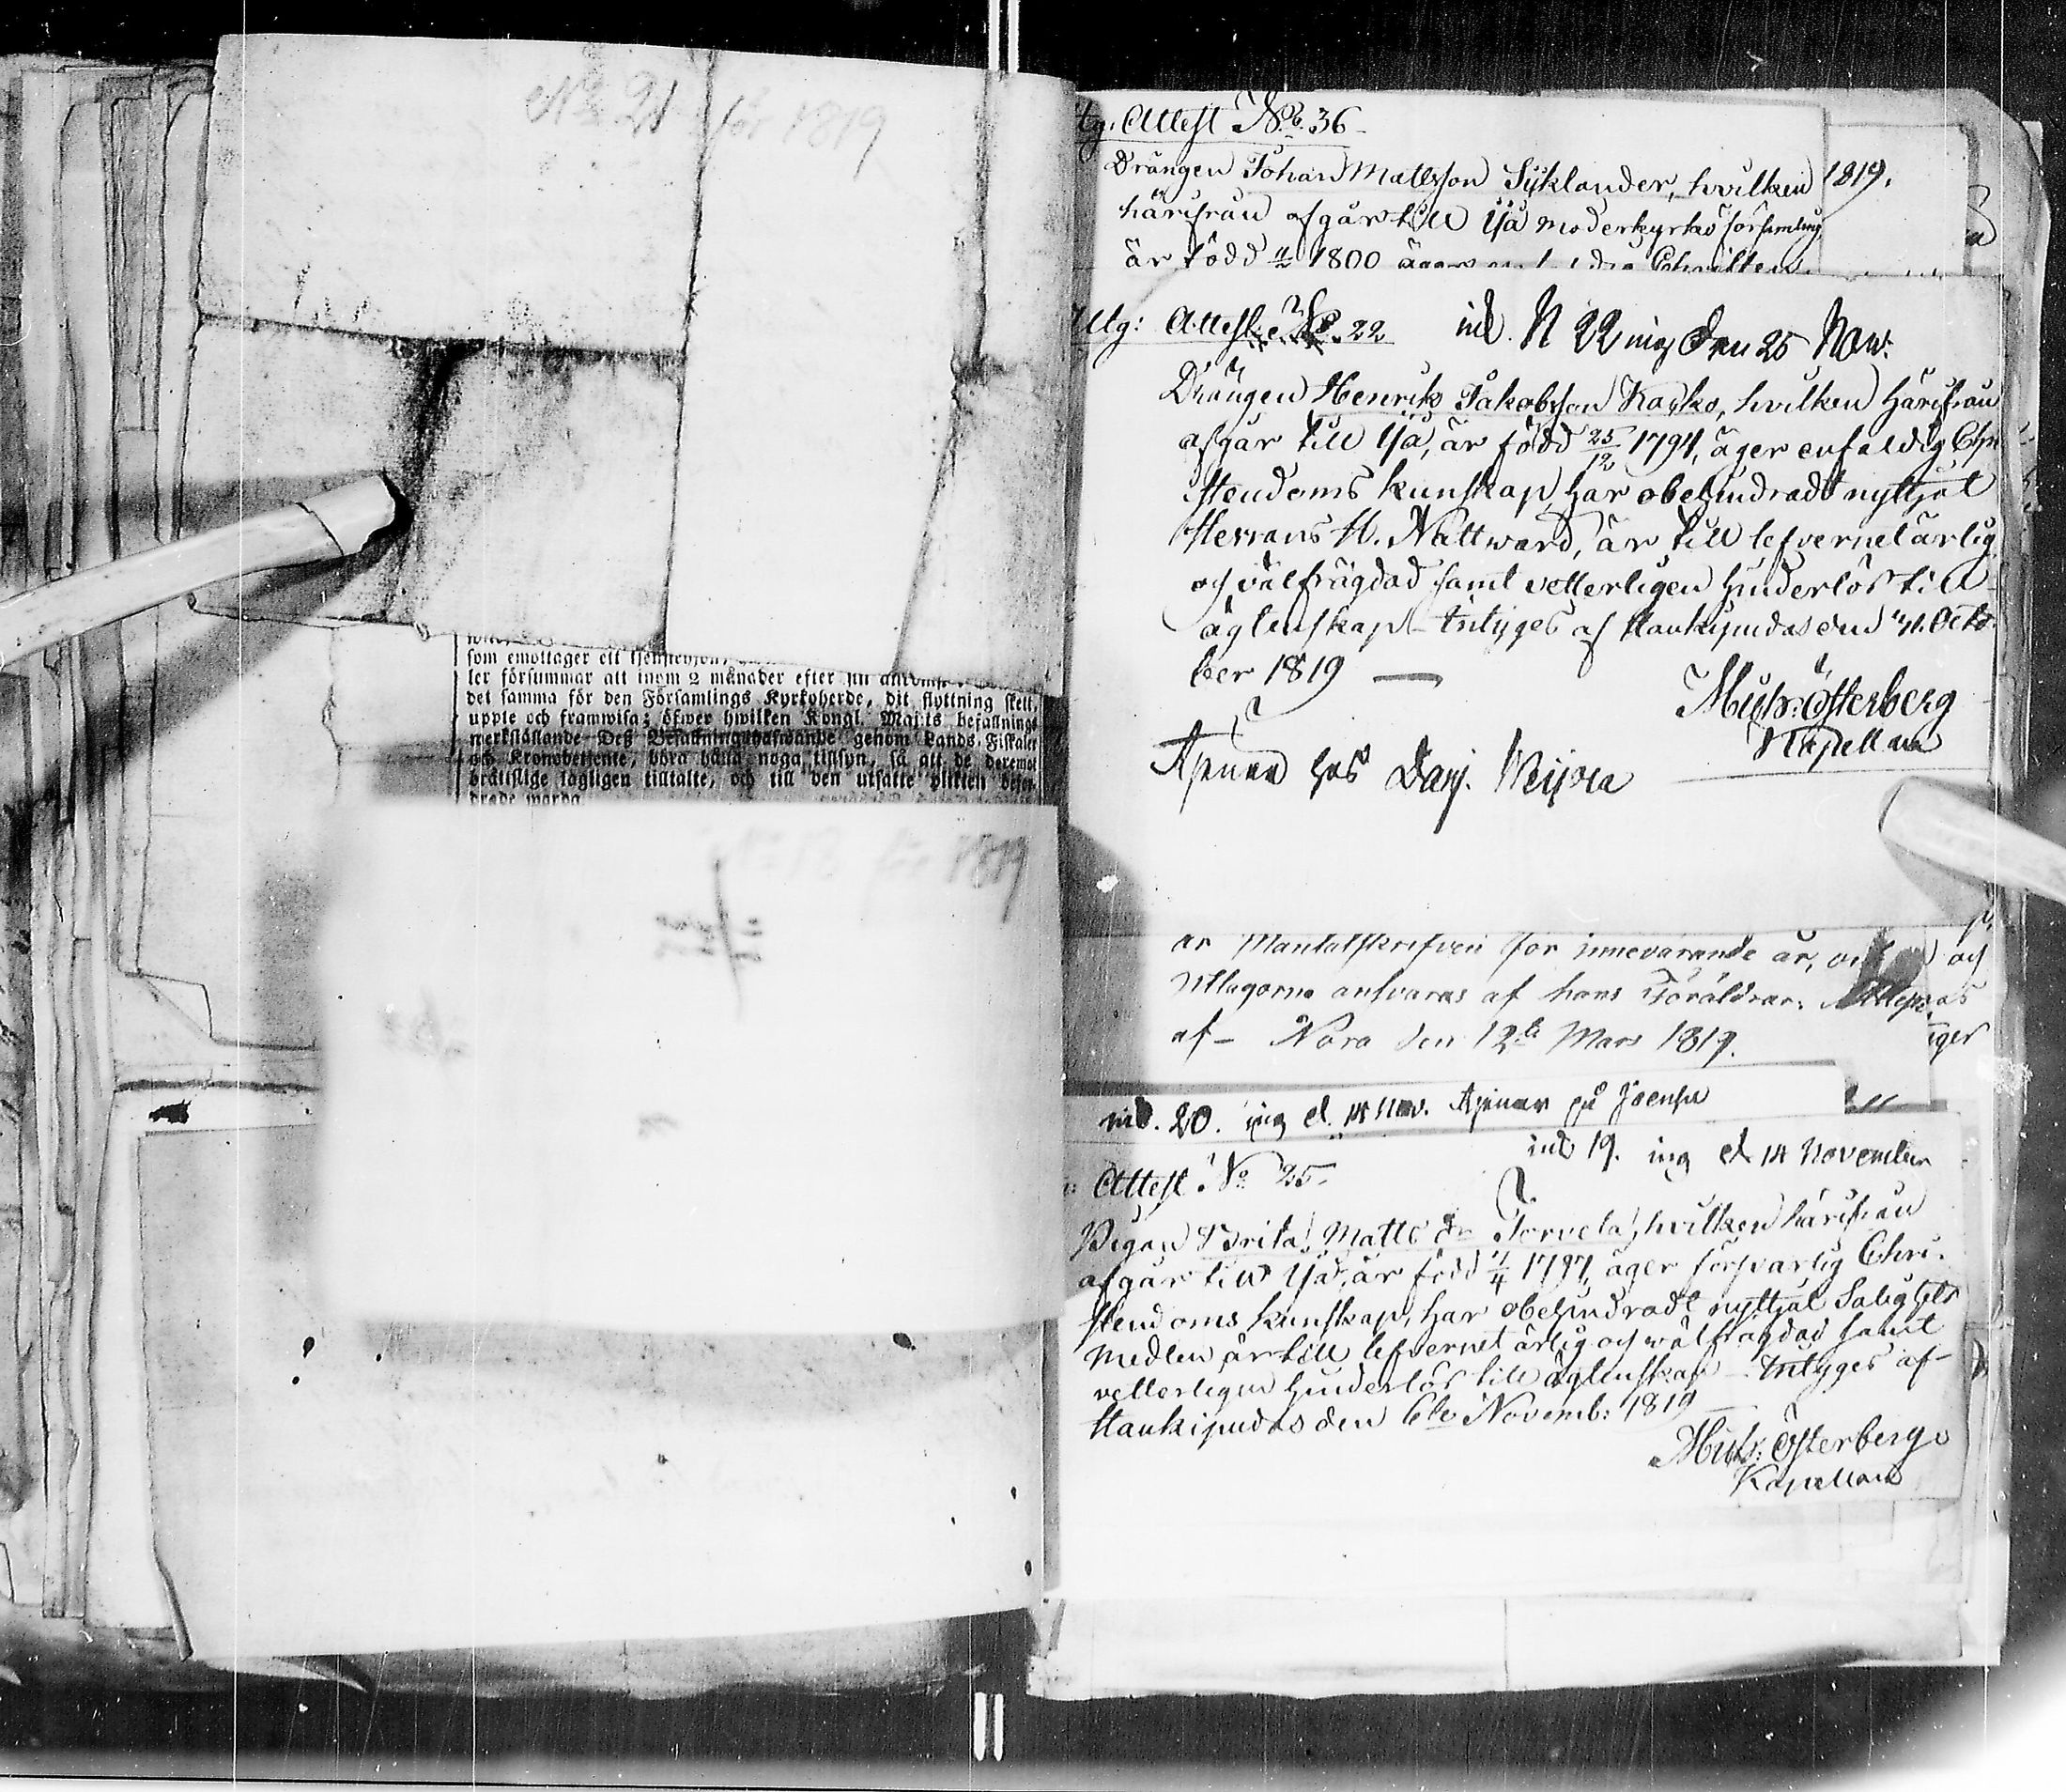 No 21 för 1819
som emottager ett
ler försummar att inom 2 månader efter sin
det samma för den Församlings Kyrkoherde, dit flyttning skett,
uppte och framwisa; öfwer hwilken Kongl. Maj:ts befattnings
werkställande Deß Befallningshafwande genom Lands-Fiskaler
och Kronobetjente, böra hålla noga tillsyn, så att de deremot
brottslige lagligen tilltalte, och till den utsatte plikten befor-
drade warda
No 18 för 1819
tg. Attest No. 36
Drängen Johan Mattsson Syklander, hvilken
1819.
härifrån afgår till Ijå moderkyrko församling
är född 1800
Utg: Attest No. 22 inl. N 22 ing den 25 Now.
Drängen Henrik Jakobsson Kasko, hvilken härifrån
afgår till Ijå, är född 25/12 1794, äger enfaldig Chri
stendoms kunskap, har obehindradt nyttjat
Herrans H. Nattward, är till lefvernet ärlig
och välfrägdad samt vetterligen hinderlös till
ägtenskap – intyges af Haukipudas den 31. Octo-
ber 1819 —
Mich: Österberg
Kapellan
Ajenar hos Danj. Weijola
är Mantalskrifven för innevarande år, och
Utlagorne ansvaras af hans Föräldrar. Attesteras
af – Nora den 12te Mars 1819.
inl. 20. ing d. 14 Nov. Ajenar på Joensu
inl 19. ing d 14 November
Attest No 25.
Pigan Brita Matts dr Torvela, hvilken härifrån
afgår till Ijå, är född 1/4 1797, äger försvarlig Chri-
stendoms kunskap, har obehindradt nyttjat Salighets
Medlen är till lefvernet ärlig och wälfrägdad samt
vetterligen hinderlös till ägtenskap – intyges af –
Haukipudas den 6te Novemb: 1819 —
Mich: Österberg
Kapellan